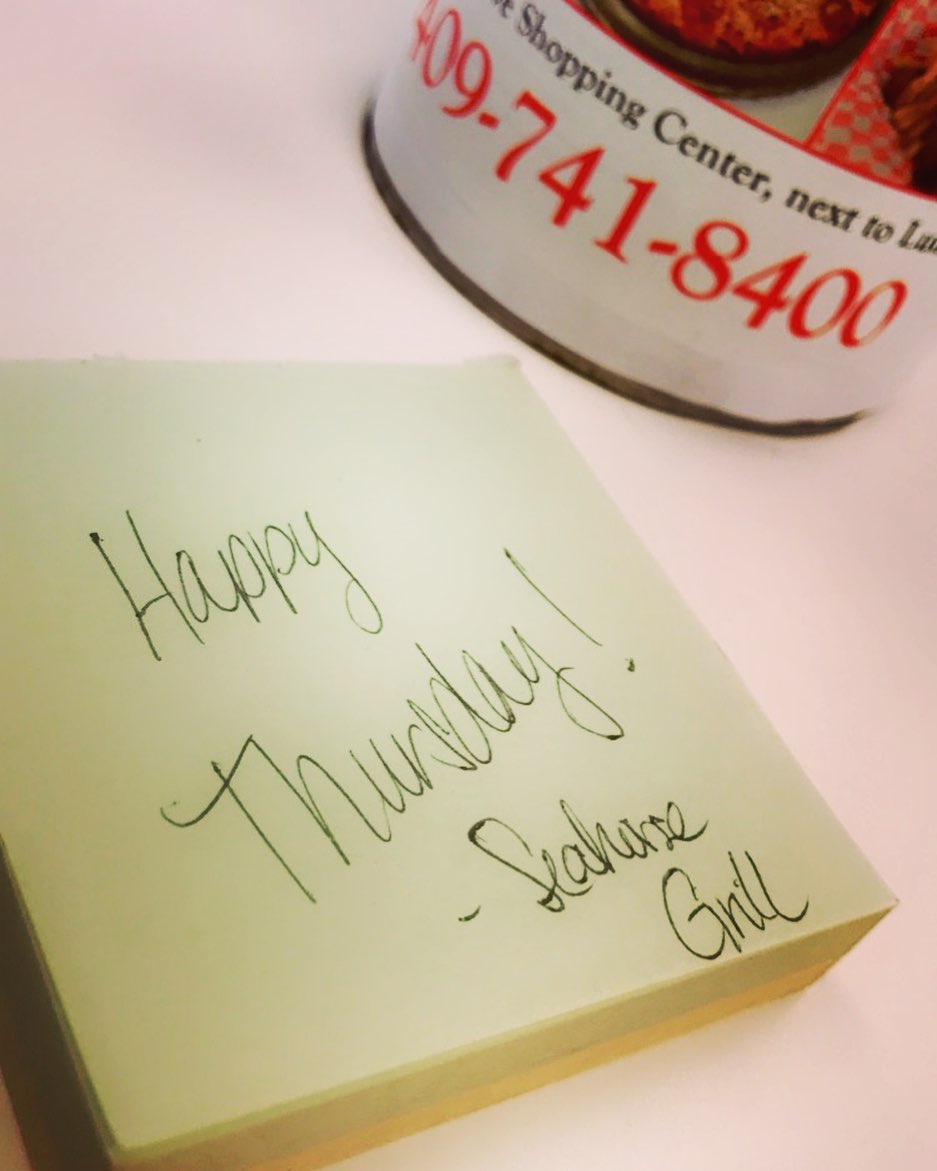 Shopping Center, next to
409-741-8400
Happy
Thursday!
- Seahorse
Grill